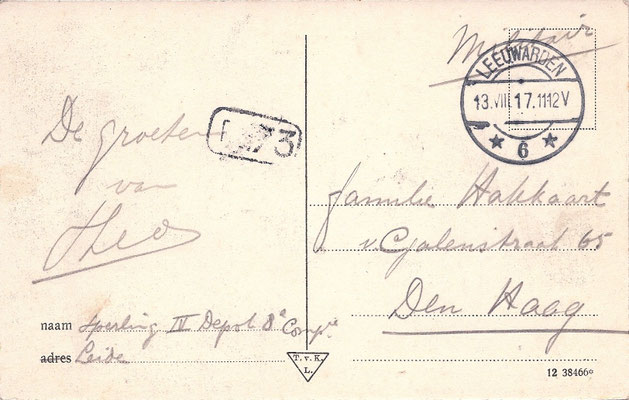 Militair
LEEUWARDEN
13.VIII.17.1112V
6
De groeten
van
Theo
73
familie Hakkaart
v. Galenstraat 65
Den Haag
naam Sperling IV Depot 8e Compie
adres Leide
T. v. K.
L.
12 38466°